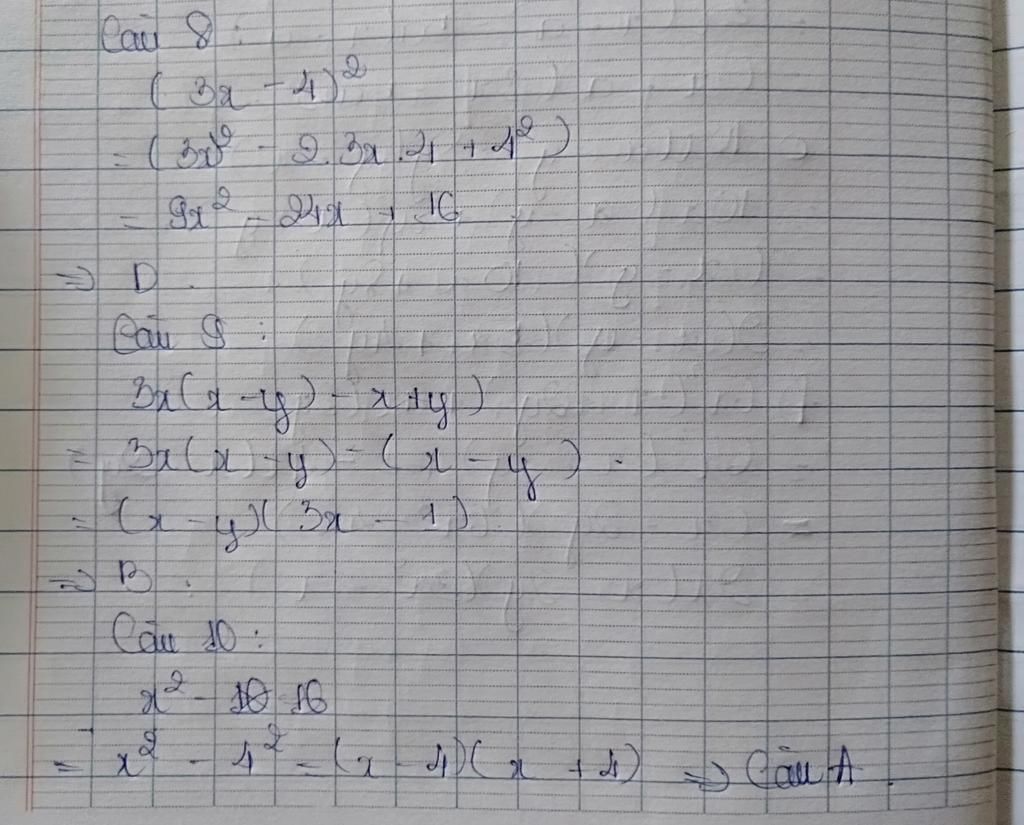 Câu 8 :
( 3x - 4)²
= ( 3x)² - 2.3x.4 + 4²)
= 9x² - 24x + 16
=> D.
Câu 9 :
3x(x-y) - x+y)
= 3x(x)-y) - (x - y).
= (x - y)( 3x - 1)
=> B.
Câu 10 :
x² - 16
= x² - 4² = (x - 4)(x + 4) => Câu A.